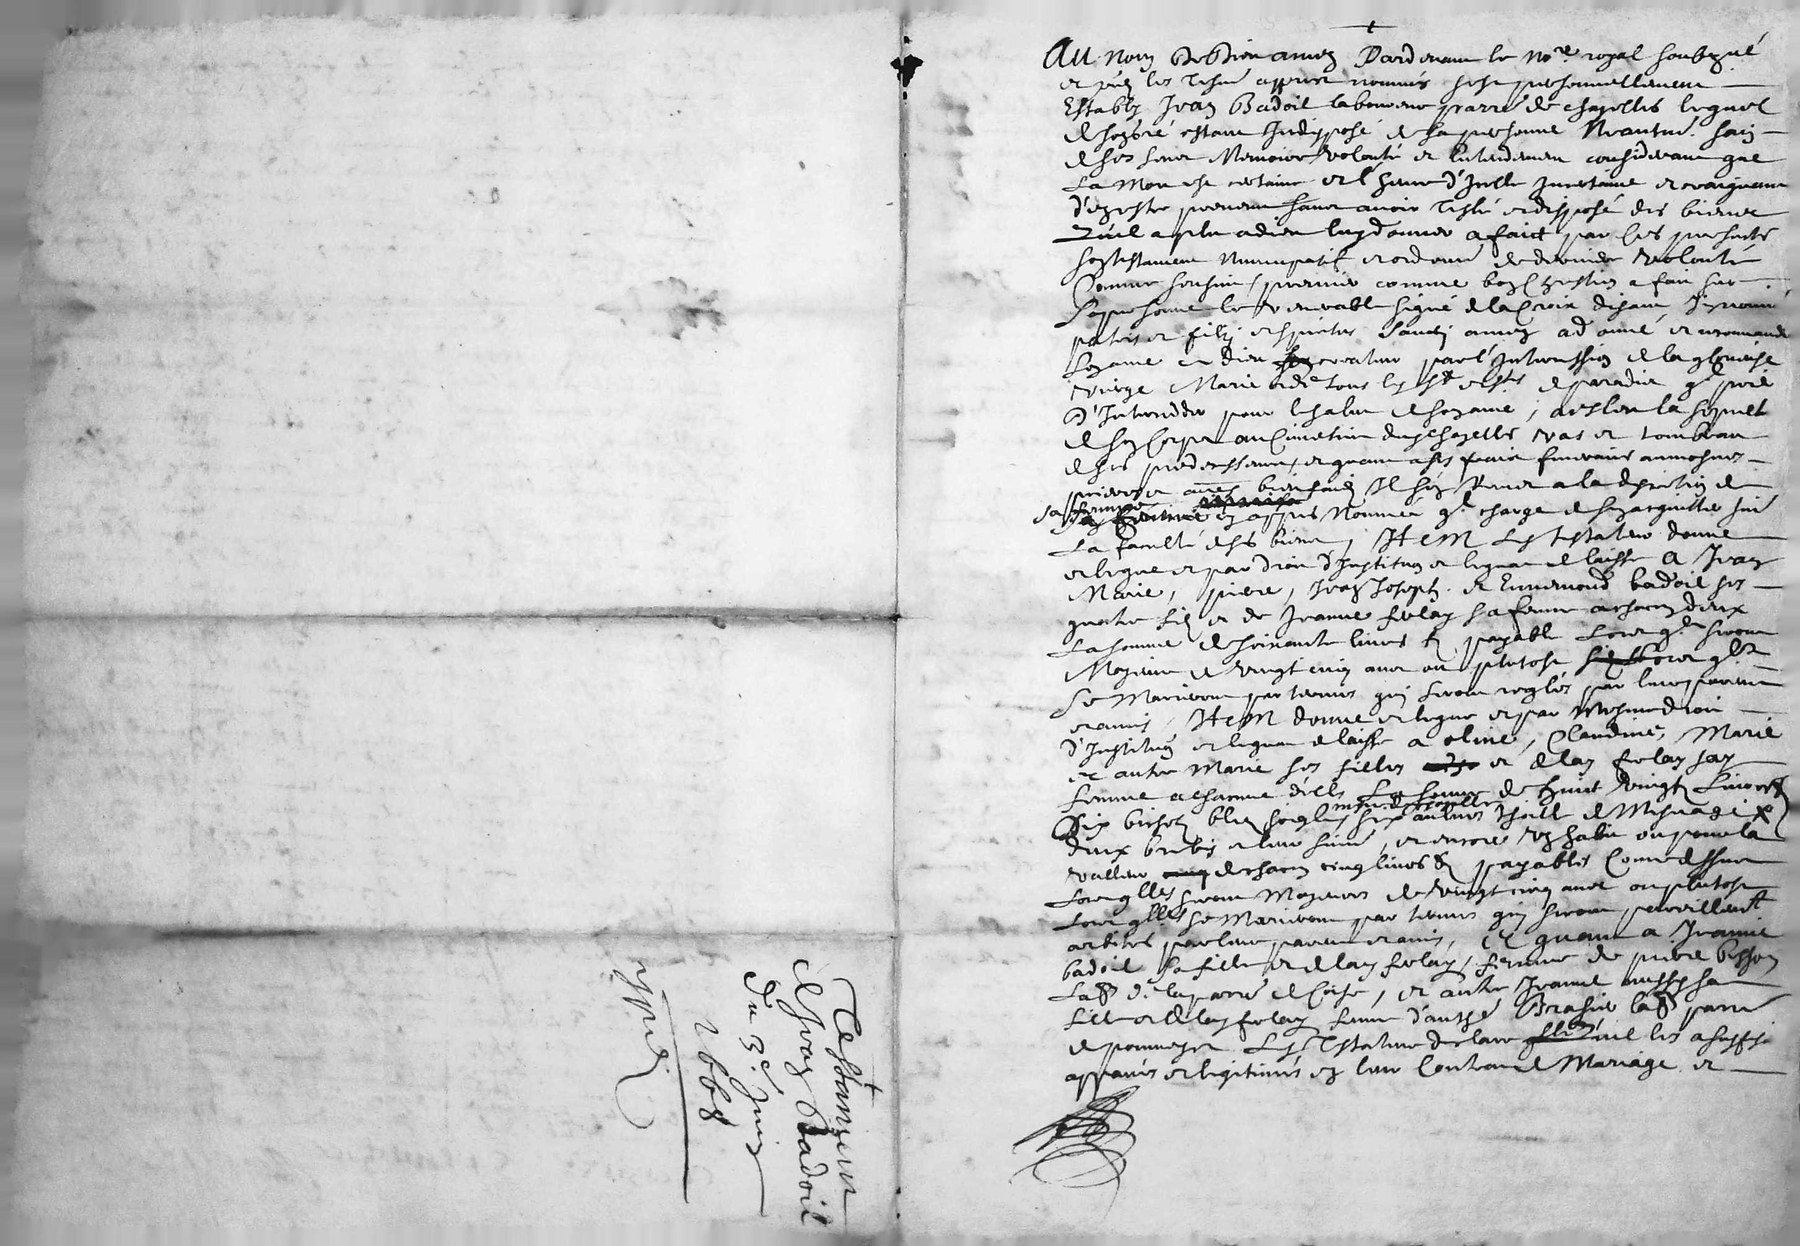 Testament
de Jean Badoil
du 3e Juin
1668
Au Nom de Dieu amen Pardevant le Nore royal soubzné
et pnts les tesms appres nommés sest personnellement
Estably Jean Badoil laboureur parre de chazelles lequel
de son gré estant Indisposé de sa personne Neantm. sain
de ses sens Memoire volonté et entendement considerant que
La Mort est certaine et l'heure d'Icelle Incertaine et craignant
d'en estre prevenu sans avoir testé et disposé des biens
Quil a plu a dieu luy donner a faict par ces presentes
son testament Nuncupatif et ordonné de derniere volonté
Comme sensuit, premier comme bon chrestien a fait sur
sa personne le venerable signe de la Croix disant In nomine
patris et filij et spiritus sancti amen a donné et recommandé
son ame a dieu son createur par l'Intercession de la glorieuse
vierge Marie et de tous les sts et stes de paradis ql prie
d'Interceder pour le salut de son ame, a esleu la sepult.
de son Corps au Cimetiere dud chazelles vas et tombeau
de ses predecesseurs, et quant a ses frais funeraires aumosnes
prieres et autres bienfaits Il sen Remet a la discretion de
sa femme cy appres Nommée ql charge de sen acquitter suivt
La faculté de ses biens, Item Led testateur donne
et legue et par droit d'Institution et legat delaisse a Jean
Marie, pierre, Jean Joseph et Ennemond badoil ses
quatre fils et de Jeanne ferlay sa femme a chacun deux
La somme de soixante livres payable Lors ql seront
Majeurs de vingt cinq ans ou plutost lors qls
se Marieront par termes qui seront reglés par leurs parents
et amis, Item donne et legue et par Mesme droit
d'Institution et legat delaisse a oline, Claudine, Marie
et autre Marie ses filles et de lad ferlay sa
femme a chacune d'elles La somme de huit vingt Livres
Six bichets bled seigle six aulnes thoille de Mesnage
deux brebis et leur suitte, et encore un habit ou pour la
valleur de chacun cinq livres payables Comme dessus
Lors qlles seront Majeures de vingt cinq ans ou plutost
Lors qlles se Marieront par termes qui seront
arbitrés par leurs parents et amis, Et quant a Jeanne
badoil sa fille et de lad ferlay, femme de pierre besson
Labr de la parre de Coise, et autre Jeanne aussy sa
fille et de lad ferlay femme d'anthe Brasier labr parre
de pomeys Led Testateur declare quil les a suffisa
appanés et legitimés en leur Contract de Mariage et